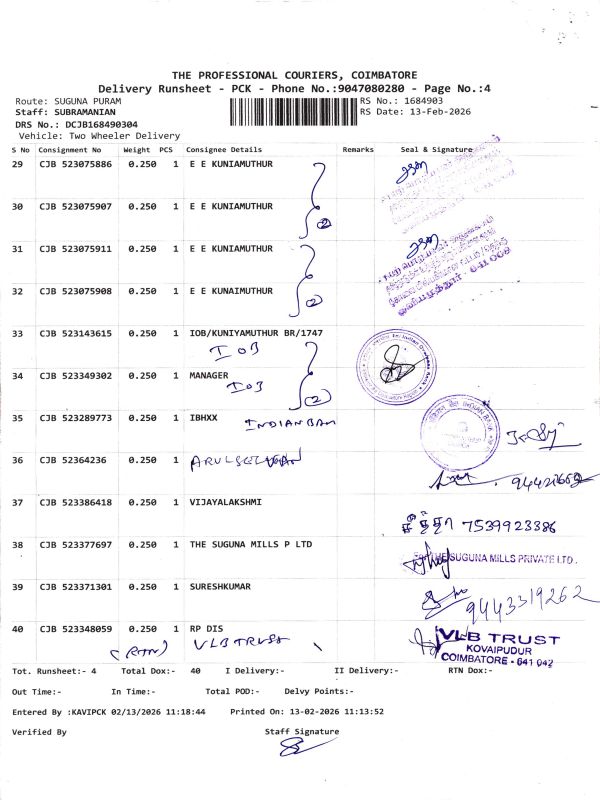 THE PROFESSIONAL COURIERS, COIMBATORE
Delivery Runsheet - PCK - Phone No.:9047080280 - Page No.:4
Route: SUGUNA PURAM
RS No.: 1684903
Staff: SUBRAMANIAN
RS Date: 13-Feb-2026
DRS No.: DCJB168490304
Vehicle: Two Wheeler Delivery
S No Consignment No Weight PCS Consignee Details Remarks Seal & Signature
29 CJB 523075886 0.250 1 E E KUNIAMUTHUR
30 CJB 523075907 0.250 1 E E KUNIAMUTHUR
2
31 CJB 523075911 0.250 1 E E KUNIAMUTHUR
32 CJB 523075908 0.250 1 E E KUNAIMUTHUR
2
641 008
33 CJB 523143615 0.250 1 IOB/KUNIYAMUTHUR BR/1747
IOB
34 CJB 523349302 0.250 1 MANAGER
IOB
2
35 CJB 523289773 0.250 1 IBHXX
INDIAN BANK
36 CJB 52364236 0.250 1 ARULSELVAN
37 CJB 523386418 0.250 1 VIJAYALAKSHMI
7539923386
38 CJB 523377697 0.250 1 THE SUGUNA MILLS P LTD
THE SUGUNA MILLS PRIVATE LTD.
39 CJB 523371301 0.250 1 SURESHKUMAR
9443319262
40 CJB 523348059 0.250 1 RP DIS
(RTN) VLB TRUST
VLB TRUST
KOVAIPUDUR
COIMBATORE - 641 042
Tot. Runsheet:- 4 Total Dox:- 40 I Delivery:- II Delivery:- RTN Dox:-
Out Time:- In Time:- Total POD:- Delvy Points:-
Entered By :KAVIPCK 02/13/2026 11:18:44 Printed On: 13-02-2026 11:13:52
Verified By Staff Signature